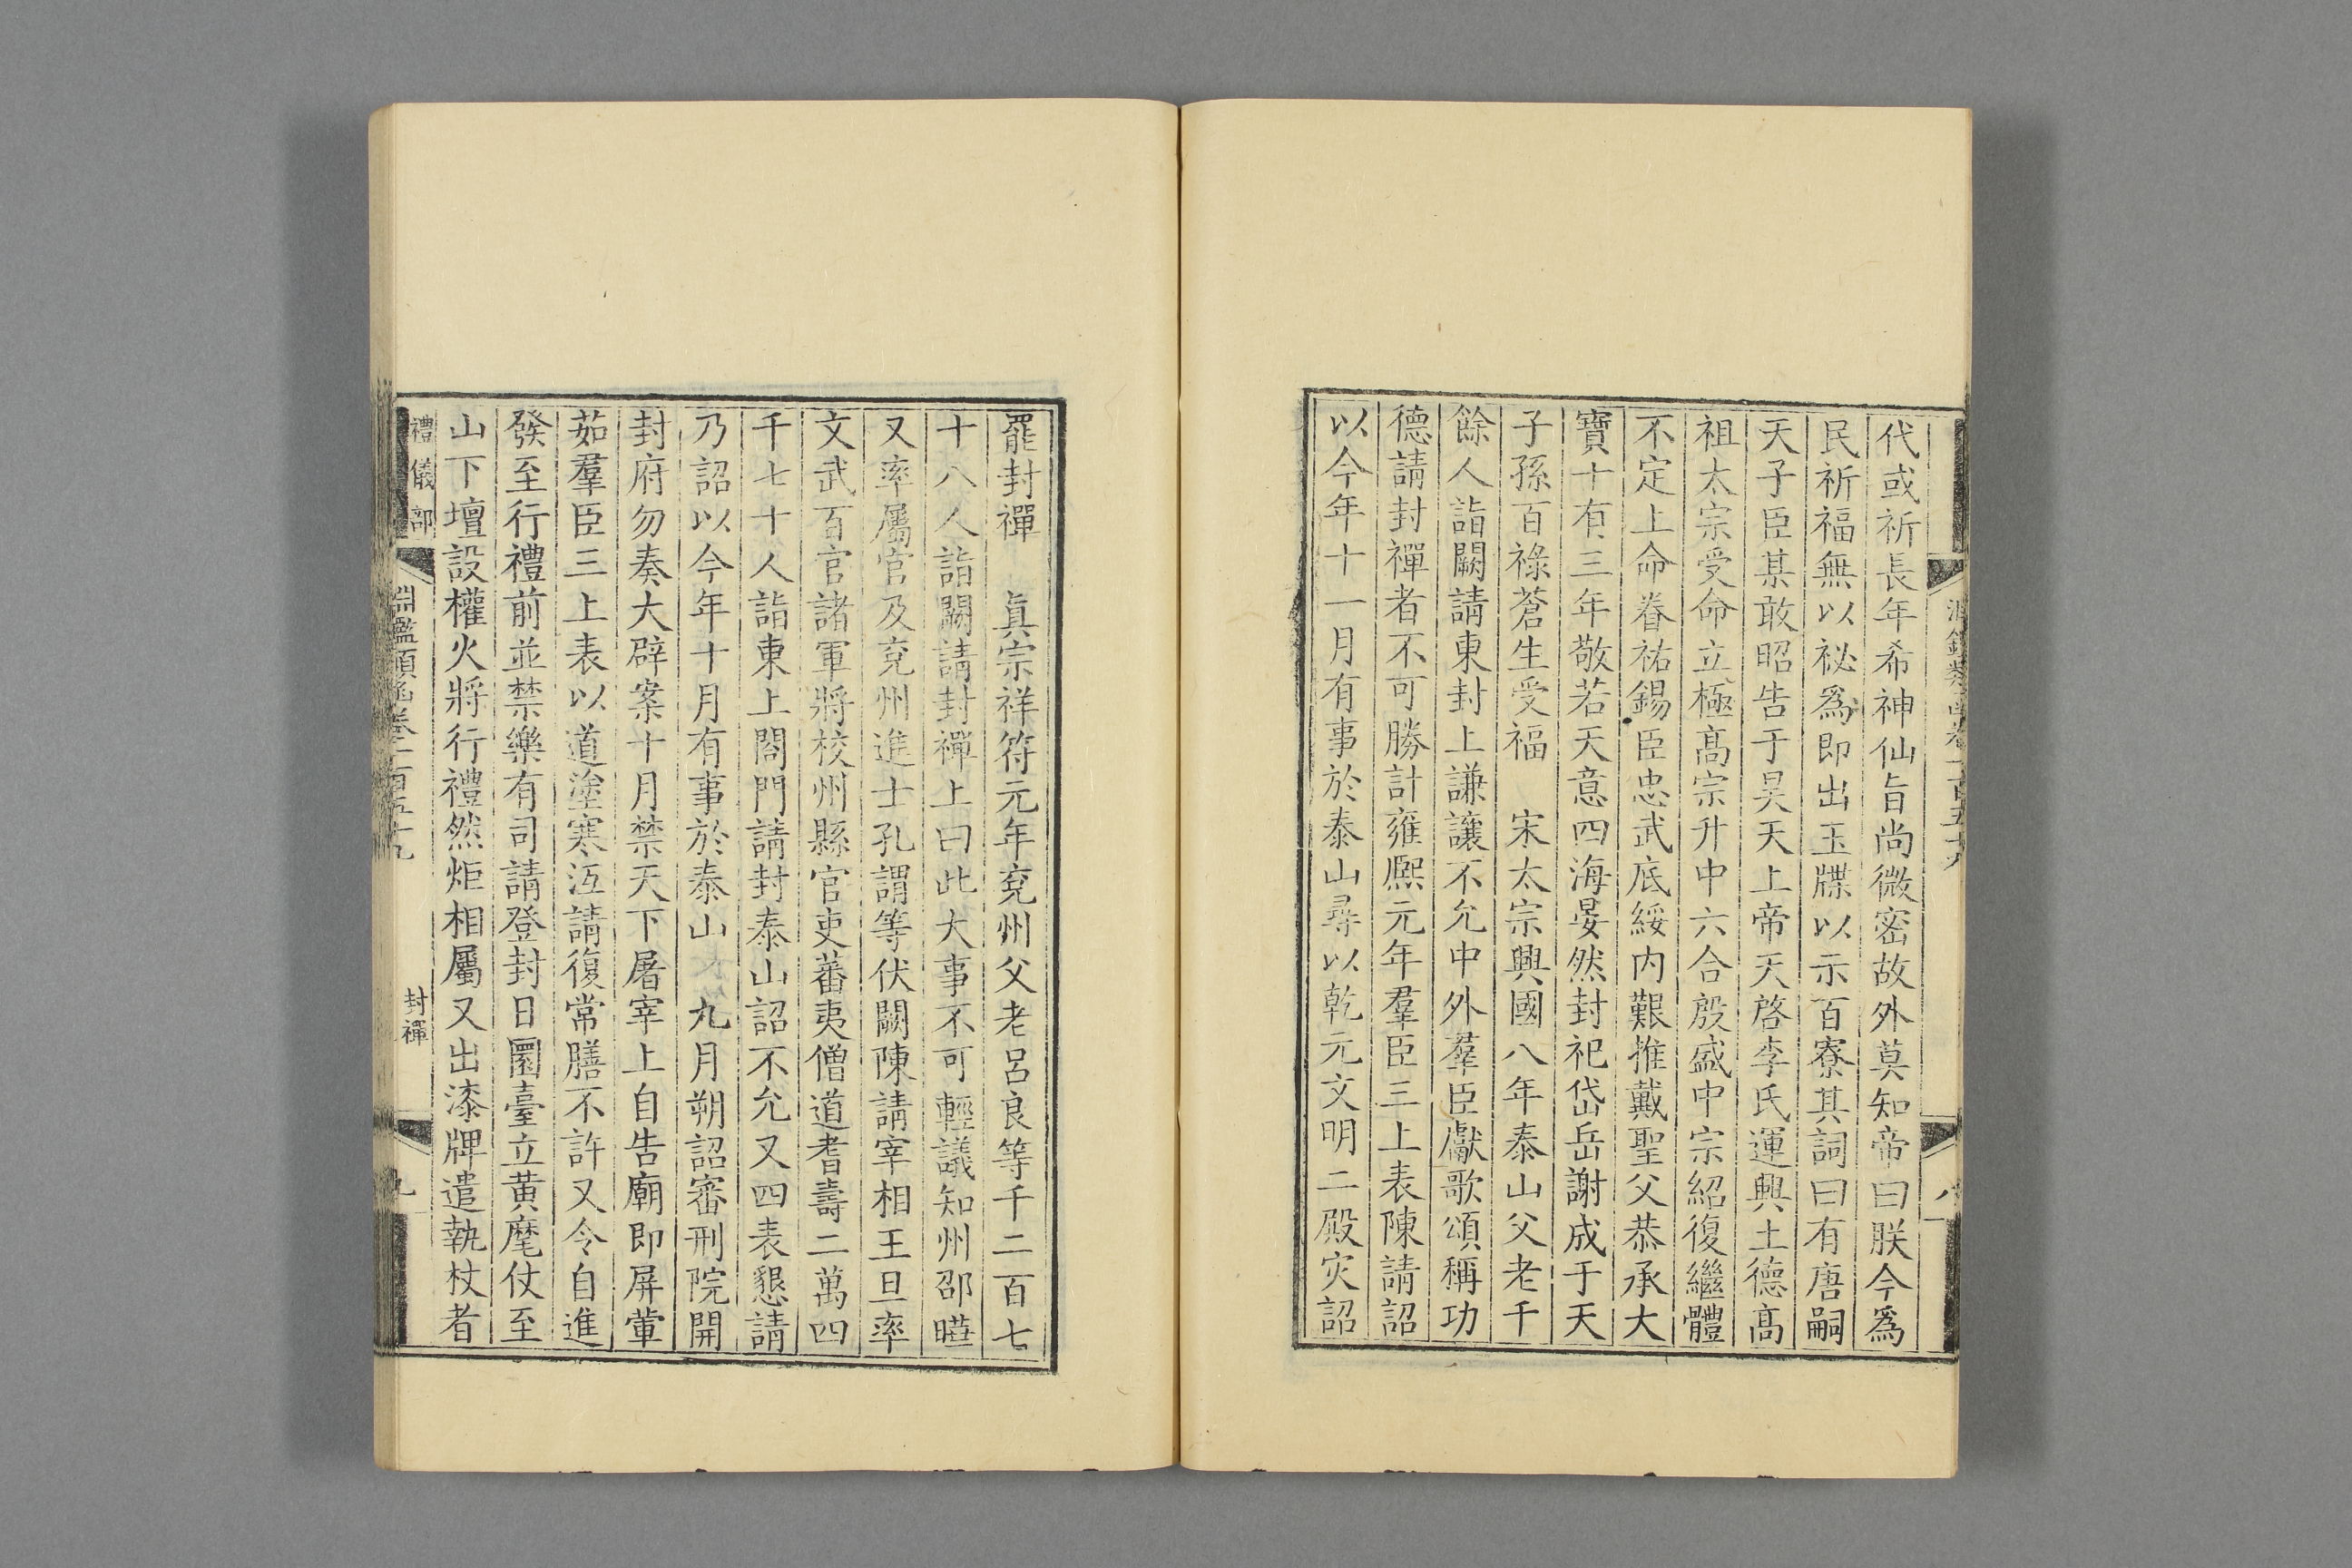 代或祈長年希神仙旨尚微密故外莫知帝曰朕今爲
民祈福無以祕爲即出玉牒以示百寮其詞曰有唐嗣
天子臣某敢昭告于昊天上帝天啓李氏運興土德高
祖太宗受命立極高宗升中六合殷盛中宗紹復繼體
不定上命眷祐錫臣忠武底綏内艱推戴聖父恭承大
寶十有三年敬若天意四海晏然封祀岱岳謝成于天
子孫百祿蒼生受福 宋太宗興國八年泰山父老千
餘人詣闕請東封上謙讓不允中外羣臣獻歌頌稱功
德請封禪者不可勝計雍熙元年羣臣三上表陳請詔
以今年十一月有事於泰山尋以乾元文明二殿灾詔
罷封禪 眞宗祥符元年兗州父老呂良等千二百七
十八人詣闕請封禪上曰此大事不可輕議知州邵曄
又率屬官及兗州進士孔謂等伏闕陳請宰相王旦率
文武百官諸軍將校州縣官吏蕃夷僧道耆壽二萬四
千七十人詣東上閤門請封泰山詔不允又四表懇請
乃詔以今年十月有事於泰山 九月朔詔審刑院開
封府勿奏大辟案十月禁天下屠宰上自告廟即屏葷
茹羣臣三上表以道塗寒沍請復常膳不許又令自進
發至行禮前並禁樂有司請登封日圜臺立黄麾仗至
山下壇設權火將行禮然炬相屬又出漆牌遣執杖者
禮儀部
淵鑑類函卷一百五十九
封禪
九